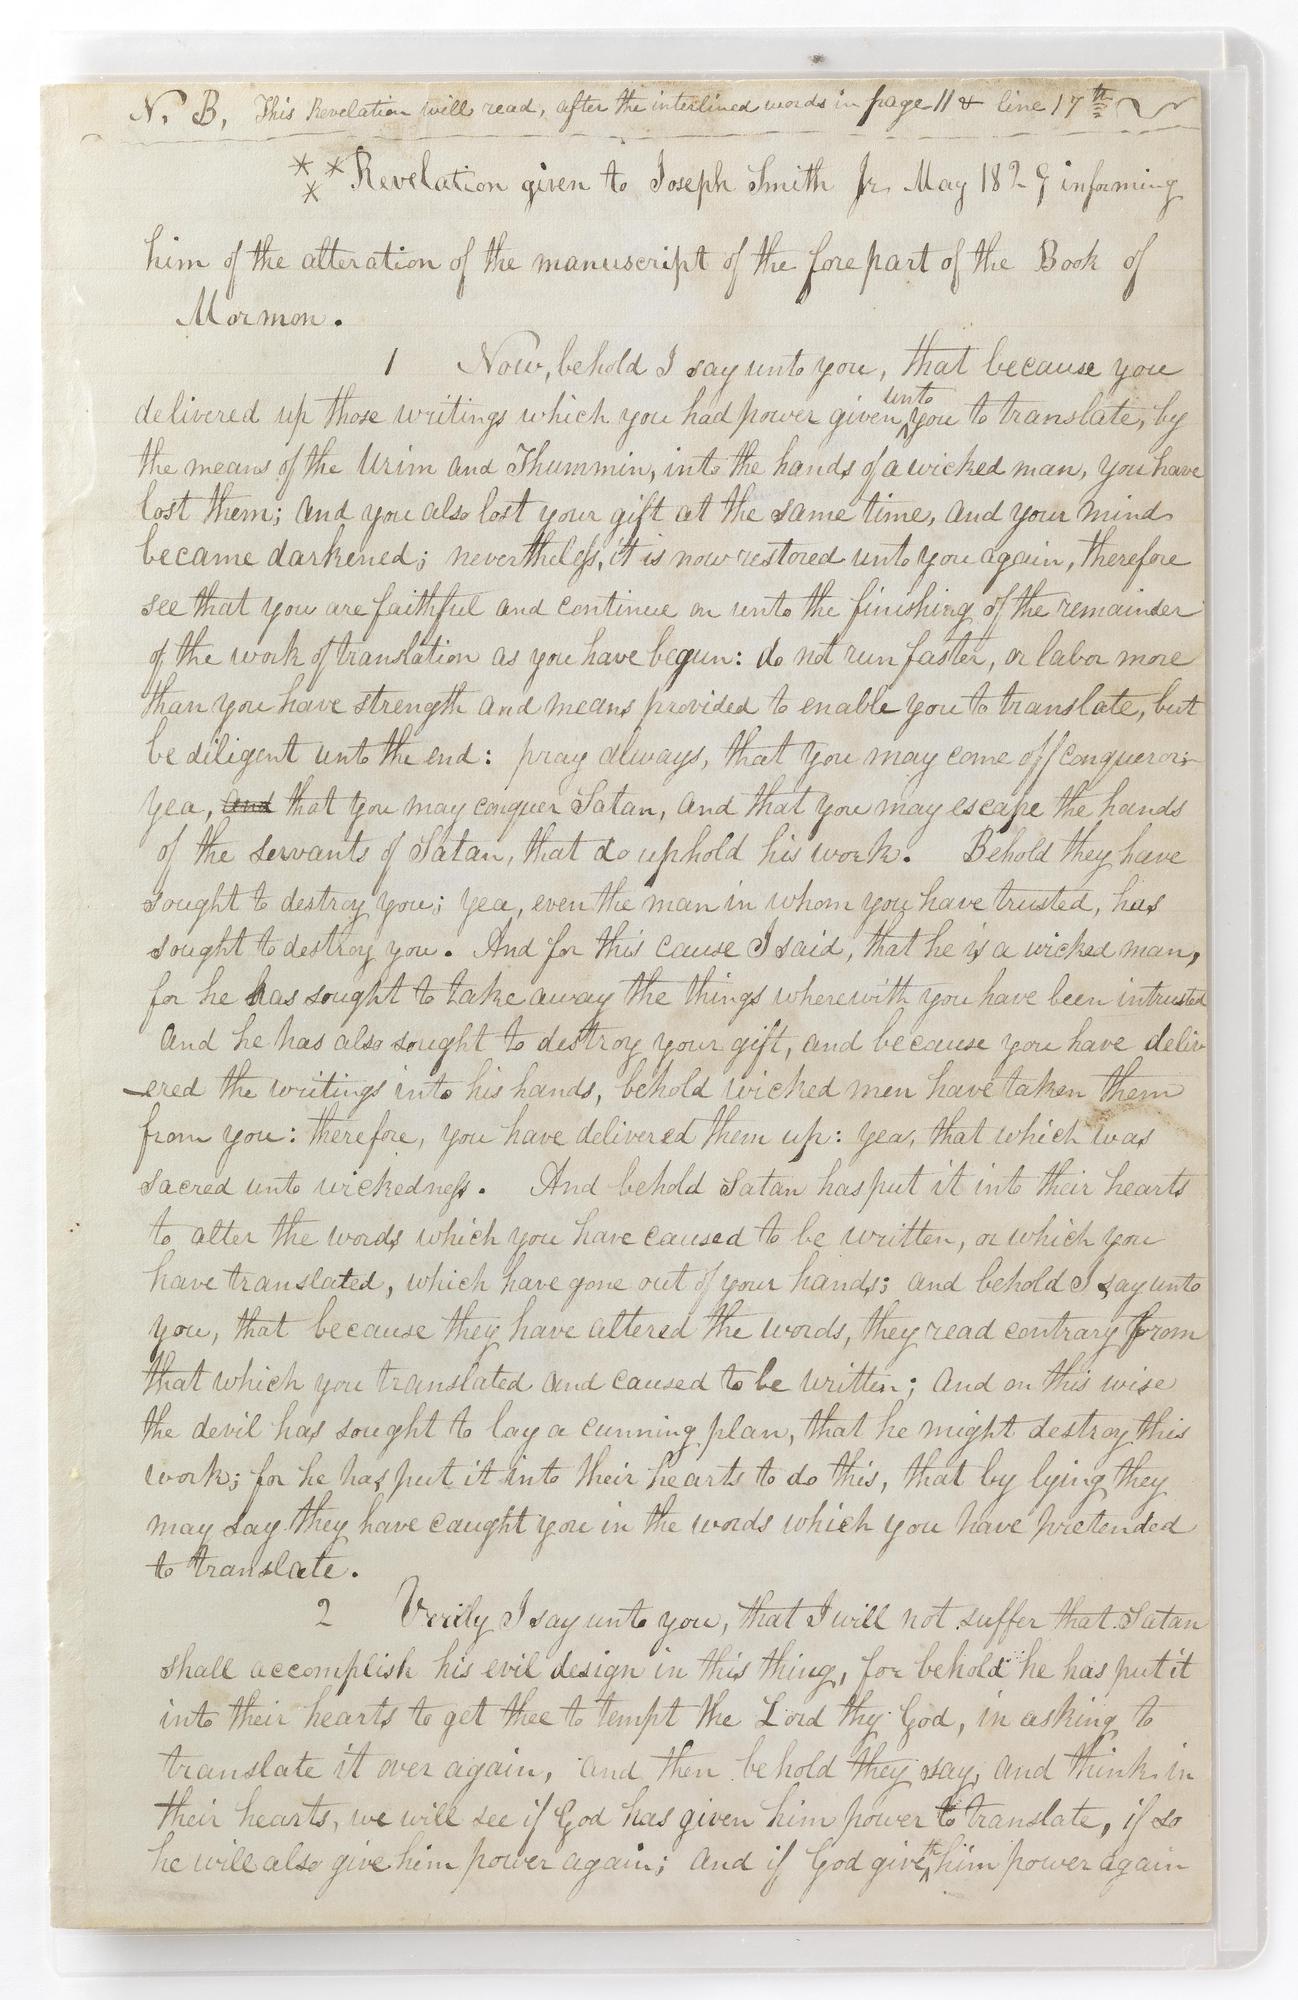 N. B. This Revelation will read, after the interlined words in page 11 & line 17th
*** Revelation given to Joseph Smith Jr. May 1829 informing
him of the alteration of the manuscript of the fore part of the Book of
Mormon.
1 Now, behold I say unto you, that because you
delivered up those writings which you had power given unto you to translate, by
the means of the Urim and Thummin, into the hands of a wicked man, you have
lost them; and you also lost your gift at the same time, and your mind
became darkened; nevertheless, it is now restored unto you again, therefore
see that you are faithful and continue on unto the finishing of the remainder
of the work of translation as you have begun: do not run faster, or labor more
than you have strength and means provided to enable you to translate, but
be diligent unto the end: pray always, that you may come off conqueror;
yea, and that you may conquer Satan, and that you may escape the hands
of the servants of Satan, that do uphold his work. Behold they have
sought to destroy you; yea, even the man in whom you have trusted, has
sought to destroy you. And for this cause I said, that he is a wicked man,
for he has sought to take away the things wherewith you have been intrusted
And he has also sought to destroy your gift, and because you have deliv
-ered the writings into his hands, behold wicked men have taken them
from you: therefore, you have delivered them up: yea, that which was
sacred unto wickedness. And behold Satan has put it into their hearts
to alter the words which you have caused to be written, or which you
have translated, which have gone out of your hands; and behold I say unto
you, that because they have altered the words, they read contrary from
that which you translated and caused to be written; and on this wise
the devil has sought to lay a cunning plan, that he might destroy this
work; for he has put it into their hearts to do this, that by lying they
may say they have caught you in the words which you have pretended
to translate.
2 Verily I say unto you, that I will not suffer that Satan
shall accomplish his evil design in this thing, for behold he has put it
into their hearts to get thee to tempt the Lord thy God, in asking to
translate it over again, and then behold they say, and think in
their hearts, we will see if God has given him power to translate, if so
he will also give him power again; and if God giveth him power again